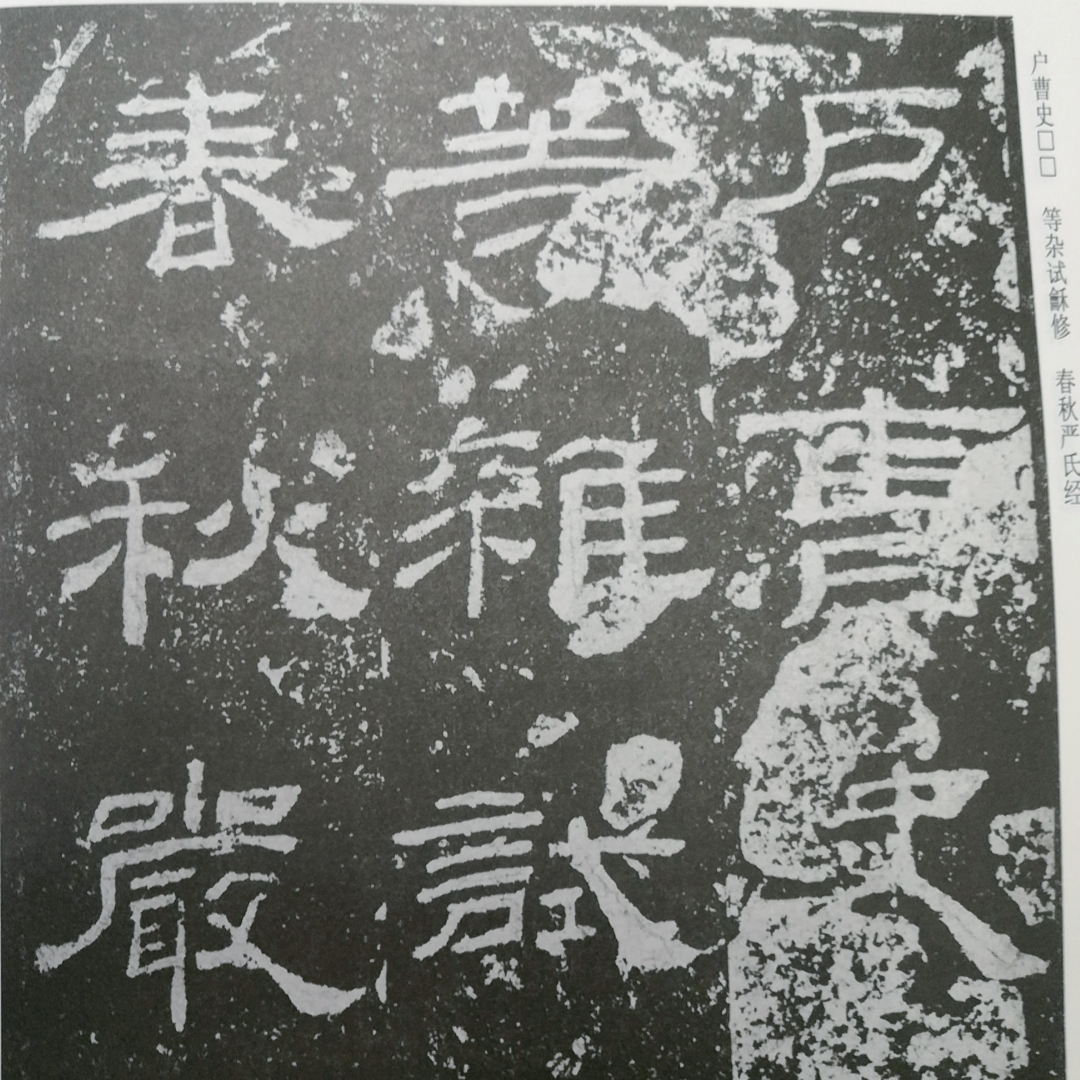 户曹史
等雜試
春秋嚴
户曹史□□ 等杂试稣修 春秋严氏经